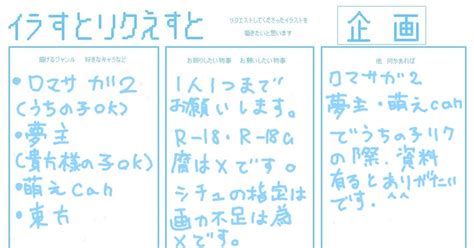 イラすとリクえすと
リクエストしてくださったイラストを
描きたいと思います
企画
描けるジャンル 好きなキャラなど
・ロマサガ2
(うちの子ok)
・夢主
(貴方様の子ok)
・萌えcan
・東方
お断りしたい物事 お願いしたい物事
1人1つまで
お願いします。
R-18・R-18G
腐は×です。
シチュの指定は
画力不足は為
×です。
他 何かあれば
ロマサガ2
夢主・萌えcan
でうちの子リク
の際、資料
有るとありがたい
です.^^